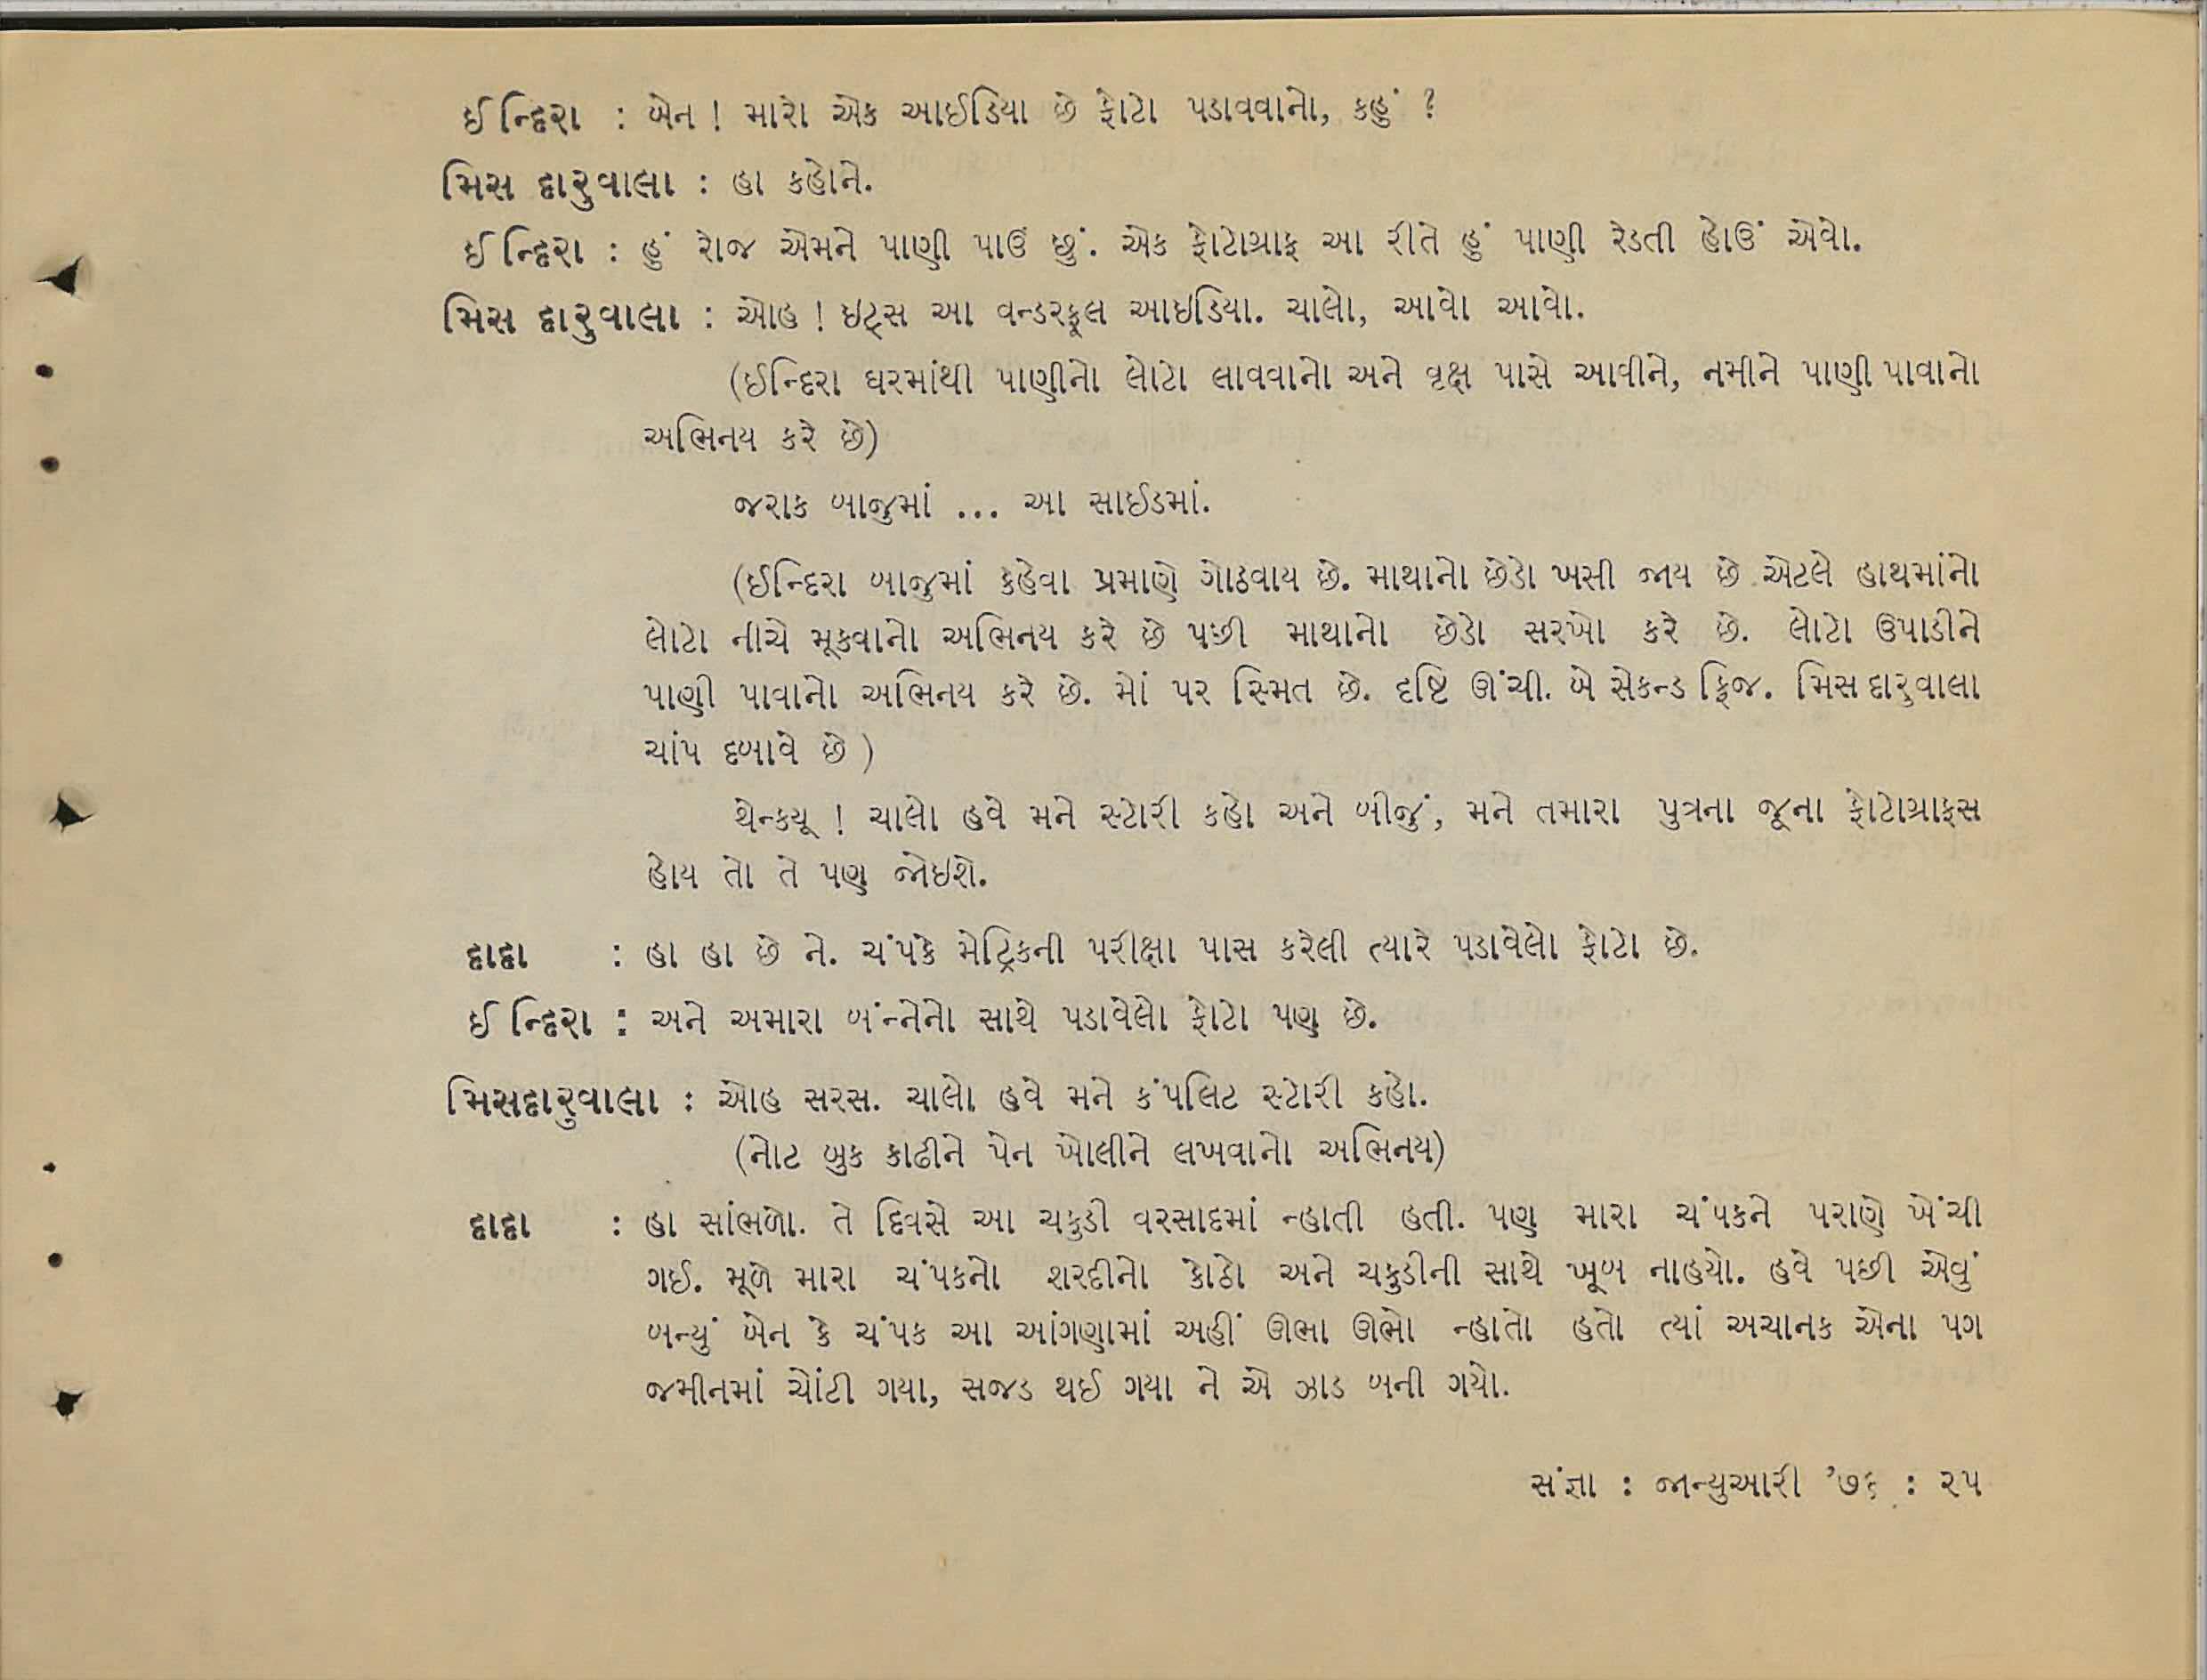 ઈન્દિરા : બેન ! મારો એક આઈડિયા છે ફોટો પડાવવાનો, કહું ?
મિસ દારુવાલા : હા કહોને.
ઈન્દિરા : હું રોજ એમને પાણી પાઉં છું. એક ફોટોગ્રાફ આ રીતે હું પાણી રેડતી હોઉં એવો.
મિસ દારુવાલા : ઓહ ! ઇટ્સ આ વન્ડરફૂલ આઇડિયા. ચાલો, આવો આવો.
(ઈન્દિરા ઘરમાંથી પાણીનો લોટો લાવવાનો અને વૃક્ષ પાસે આવીને, નમીને પાણી પાવાનો
અભિનય કરે છે)
જરાક બાજુમાં ... આ સાઈડમાં.
(ઈન્દિરા બાજુમાં કહેવા પ્રમાણે ગોઠવાય છે. માથાનો છેડો ખસી જાય છે એટલે હાથમાંનો
લોટો નીચે મૂકવાનો અભિનય કરે છે પછી માથાનો છેડો સરખો કરે છે. લોટો ઉપાડીને
પાણી પાવાનો અભિનય કરે છે. મોં પર સ્મિત છે. દૃષ્ટિ ઊંચી. બે સેકન્ડ ફ્રિજ. મિસ દારુવાલા
ચાંપ દબાવે છે )
થેન્કયૂ ! ચાલો હવે મને સ્ટોરી કહો અને બીજું, મને તમારા પુત્રના જૂના ફોટોગ્રાફસ
હોય તો તે પણ જોઇશે.
દાદા : હા હા છે ને. ચંપકે મેટ્રિકની પરીક્ષા પાસ કરેલી ત્યારે પડાવેલો ફોટો છે.
ઈન્દિરા : અને અમારા બંન્નેનો સાથે પડાવેલો ફોટો પણ છે.
મિસદારુવાલા : ઓહ સરસ. ચાલો હવે મને કંપલિટ સ્ટોરી કહો.
(નોટ બુક કાઢીને પેન ખોલીને લખવાનો અભિનય)
દાદા : હા સાંભળો. તે દિવસે આ ચકુડી વરસાદમાં ન્હાતી હતી. પણ મારા ચંપકને પરાણે ખેંચી
ગઈ. મૂળે મારા ચંપકનો શરદીનો કોઠો અને ચકુડીની સાથે ખૂબ નાહયો. હવે પછી એવું
બન્યું બેન કે ચંપક આ આંગણામાં અહીં ઊભા ઊભો ન્હાતો હતો ત્યાં અચાનક એના પગ
જમીનમાં ચોંટી ગયા, સજડ થઈ ગયા ને એ ઝાડ બની ગયો.
સંજ્ઞા : જાન્યુઆરી ’૭૬ : ૨૫